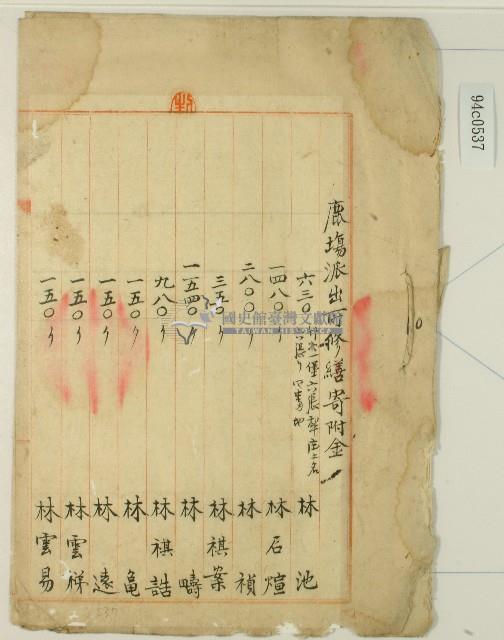 鹿場派出所修繕寄附金
六三〇 林池
一四八〇 林石煊
二八〇〇 林禎
三五〇 林祺案
一一五四〇 林疇
九八〇 林祺誥
一五〇 林亀
一五〇 林遠
一五〇 林雲梯
一五〇 林雲易
94c0537
國史館臺灣文獻館
TAIWAN HISTORICA
537